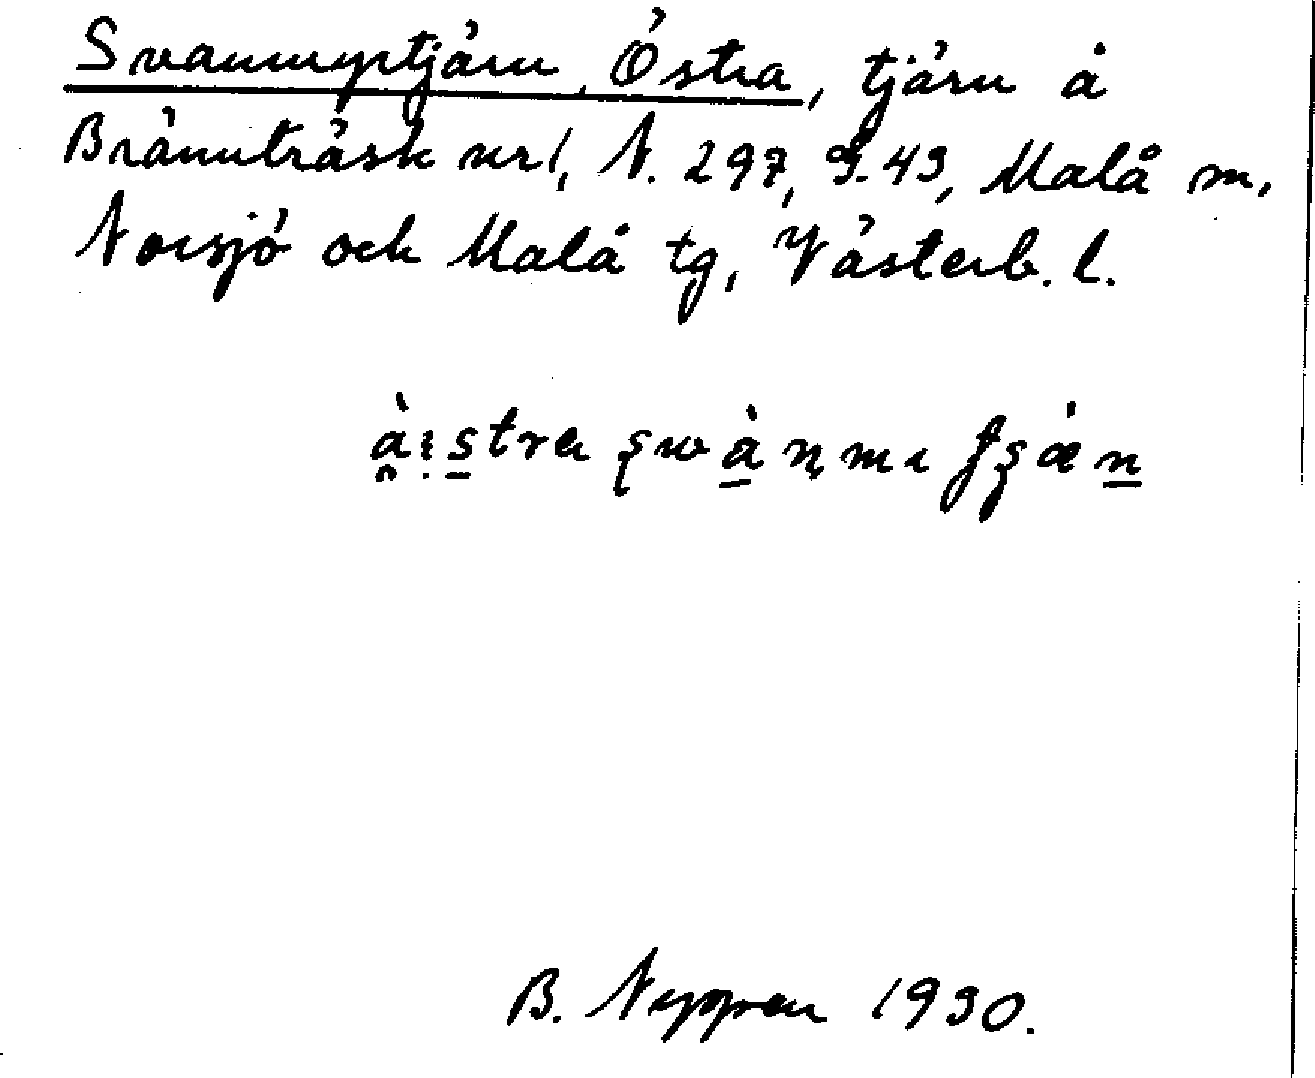 Svanmyrtjärn, Östra, tjärn å
Brännträsk nr 1, N. 297, S. 43, Malå m,
Norsjö och Malå tg, Västerb. l.
B. Nyppen 1930.